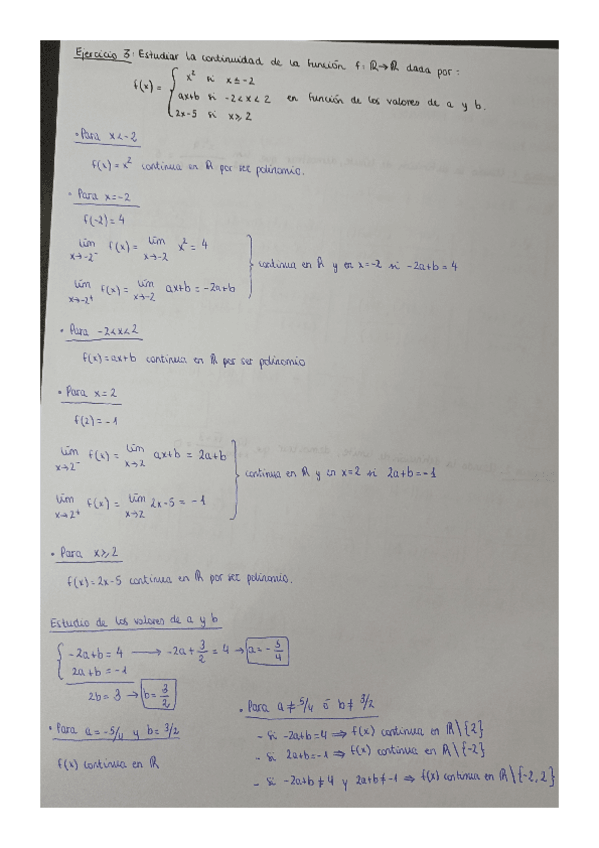 Ejercicio 3: Estudiar la continuidad de la función f: ℝ→ℝ dada por:
f(x) = { x² si x ≤ -2
ax+b si -2 < x < 2 en función de los valores de a y b.
2x-5 si x ≥ 2
• Para x < -2
f(x) = x² continua en ℝ por ser polinomio.
• Para x = -2
f(-2) = 4
lim x→-2⁻ f(x) = lim x→-2 x² = 4
continua en ℝ y en x=-2 si -2a+b = 4
lim x→-2⁺ f(x) = lim x→-2 ax+b = -2a+b
• Para -2<x<2
f(x) = ax+b continua en ℝ por ser polinomio
• Para x = 2
f(2) = -1
lim x→2⁻ f(x) = lim x→2 ax+b = 2a+b
continua en ℝ y en x=2 si 2a+b = -1
lim x→2⁺ f(x) = lim x→2 2x-5 = -1
• Para x ≥ 2
f(x) = 2x-5 continua en ℝ por ser polinomio.
Estudio de los valores de a y b
{ -2a+b = 4 → -2a + 3/2 = 4 → a = -5/4
2a+b = -1
2b = 3 → b = 3/2
• Para a = -5/4 y b = 3/2
f(x) continua en ℝ
• Para a ≠ 5/4 ó b ≠ 3/2
- Si -2a+b = 4 ⇒ f(x) continua en ℝ\{2}
- Si 2a+b = -1 ⇒ f(x) continua en ℝ\{-2}
- Si -2a+b ≠ 4 y 2a+b ≠ -1 ⇒ f(x) continua en ℝ\{-2,2}